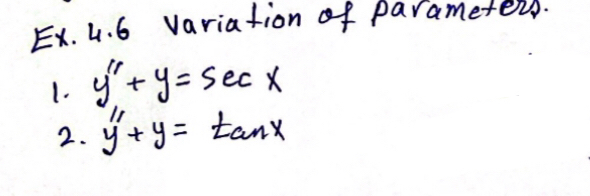 Ex. 4.6 Variation of parameters.
1. y" + y = sec x
2. y" + y = tanx